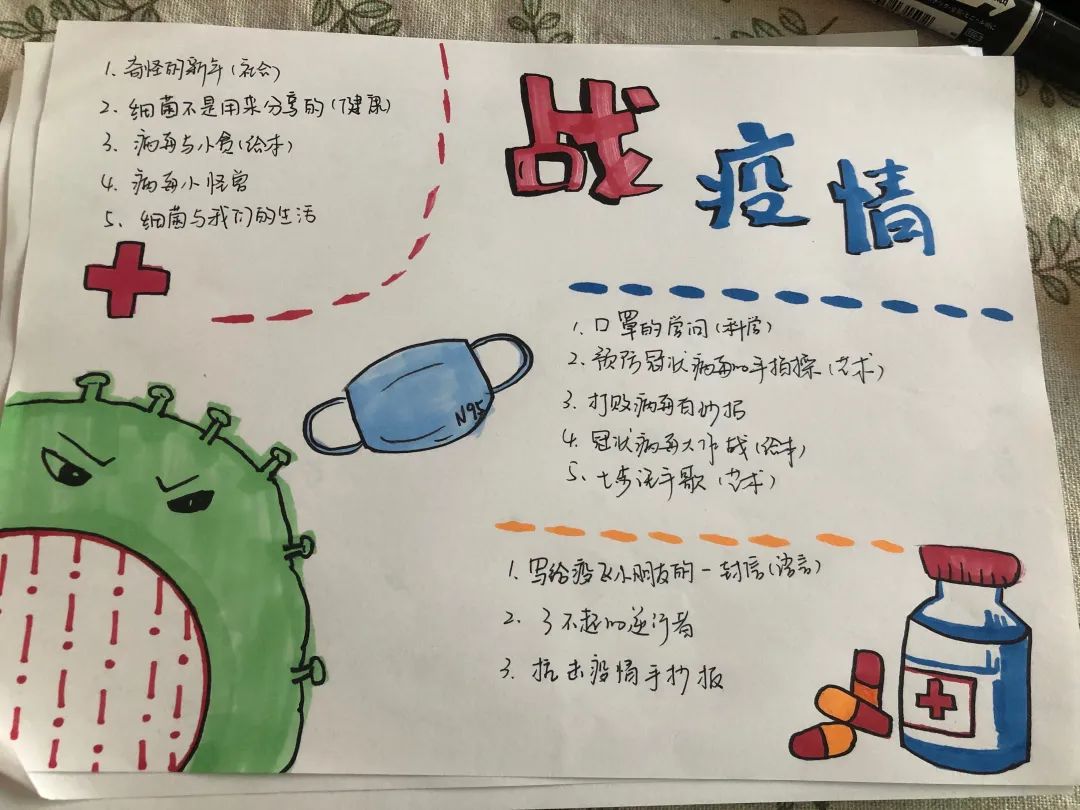 战疫情
1. 奇怪的新年(社会)
2. 细菌不是用来分享的(健康)
3. 病毒与小食(绘本)
4. 病毒小怪兽
5. 细菌与我们的生活
N95
1. 口罩的学问(科学)
2. 预防冠状病毒的手指操(艺术)
3. 打败病毒自抄报
4. 冠状病毒大作战(绘本)
5. 七步洗手歌(艺术)
1. 写给疫区小朋友的一封信(语言)
2. 了不起的逆行者
3. 抗击疫情手抄报